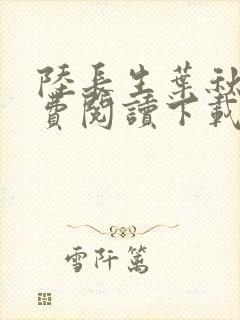 陸長生葉秋
費閱讀下載
雪阡篱